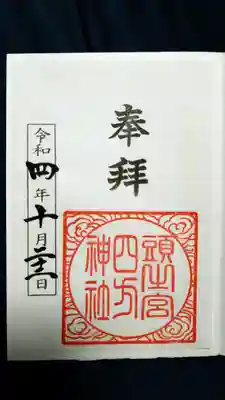 奉拝
頭之宮
四方
神社
令和四年十月二十三日